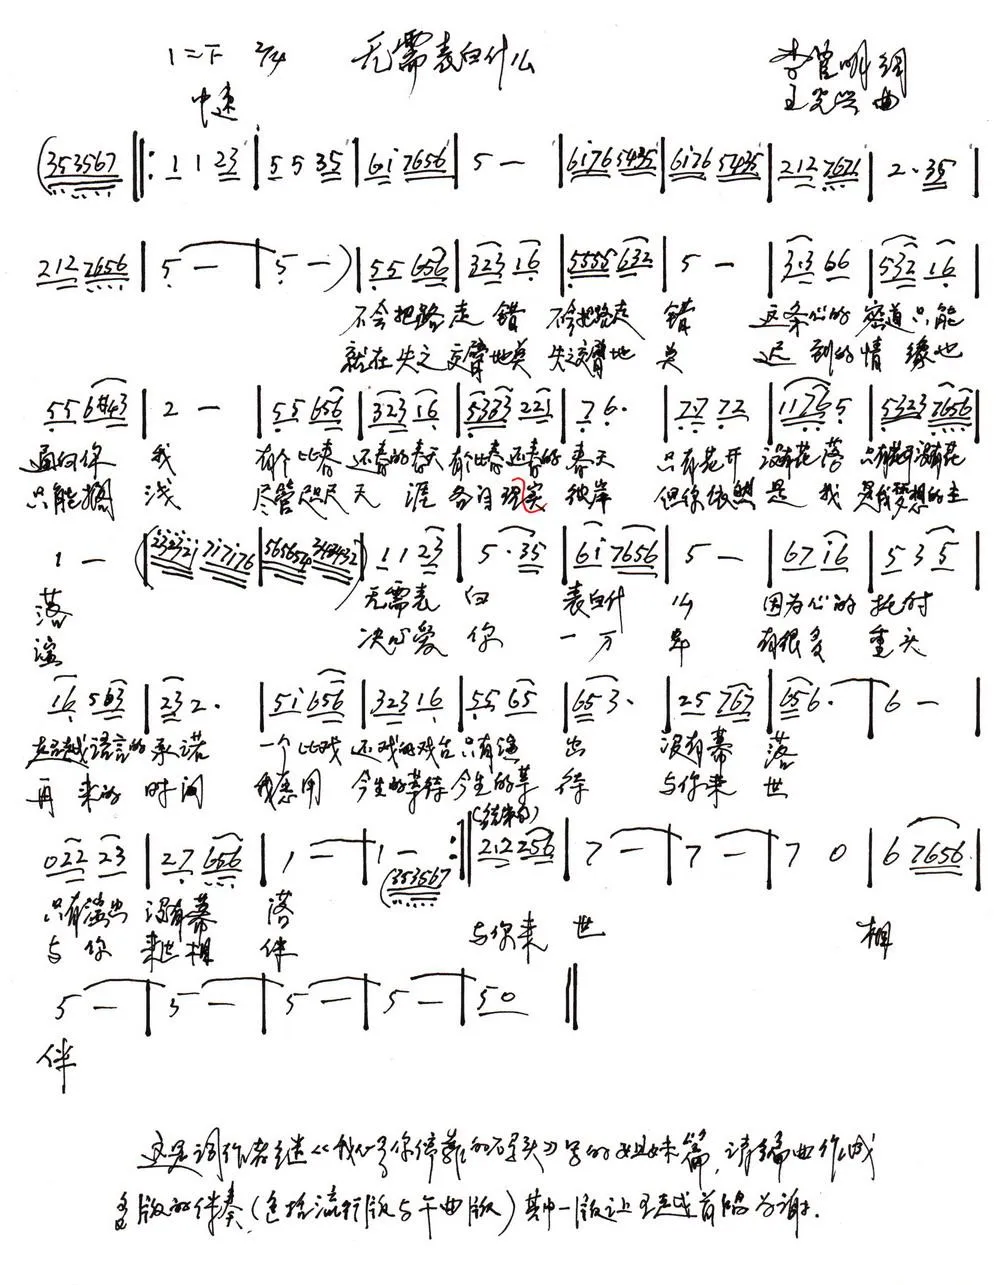 1=F 2/4 无需表白什么 李管明 词
中速 王光兴 曲
(353567 ‖: 1 1 23 | 5 5 35 | 6i 7656 | 5 — | 6i76 5435 | 6i76 5435 | 212 7671 | 2· 35 |
212 7656 | 5 — | 5 — ) | 55 656 | 323 16 | 5555 632 | 5 — | 3·3 66 | 532 16 |
不会把路走错 不会把路走错 这条心的密道只能
就在失之交臂地奂 失之交臂地奂 迟到的情缘也
55 6#43 | 2 — | 55 656 | 323 16 | 5333 221 | 76· | 77 72 | 1176 5 | 5323 7656 |
通向你我 有个比春还春的春天 有个比春还春的春天 只有花开没有花落 只有花开没有花
只能搁浅 尽管咫尺天涯 各自现实彼岸 但你依然是我 是我梦想的主
1 — | 11 23 | 5·35 | 6i 7656 | 5 — | 67 i6 | 53 5 |
落 无需表白 表白什么 因为心的托付
演 决心爱你一万年 有很多重头
16 563 | 23 2· | 5i 656 | 323 16 | 55 65 | 65 3· | 25 767 | 65 6· | 6 — |
超越语言的承诺 一个比戏还戏的戏台 只有演出 没有幕落
再来的时间 我愿用今生的等待 今生的等待 与你来世
(结束句)
022 23 | 27 656 | 1 — | 1 — (353567 :‖ 212 256 | 7 — | 7 — | 7 0 | 6 7656 |
只有演出 没有幕落
与你来世相伴 与你来世 相
5 — | 5 — | 5 — | 5 — | 50 ‖
伴
这是词作者继《我心与你停靠的码头》写的姐妹篇,请编曲作成
多版的伴奏,(包括流行版与午曲版)其中一版让王越首唱为谢.